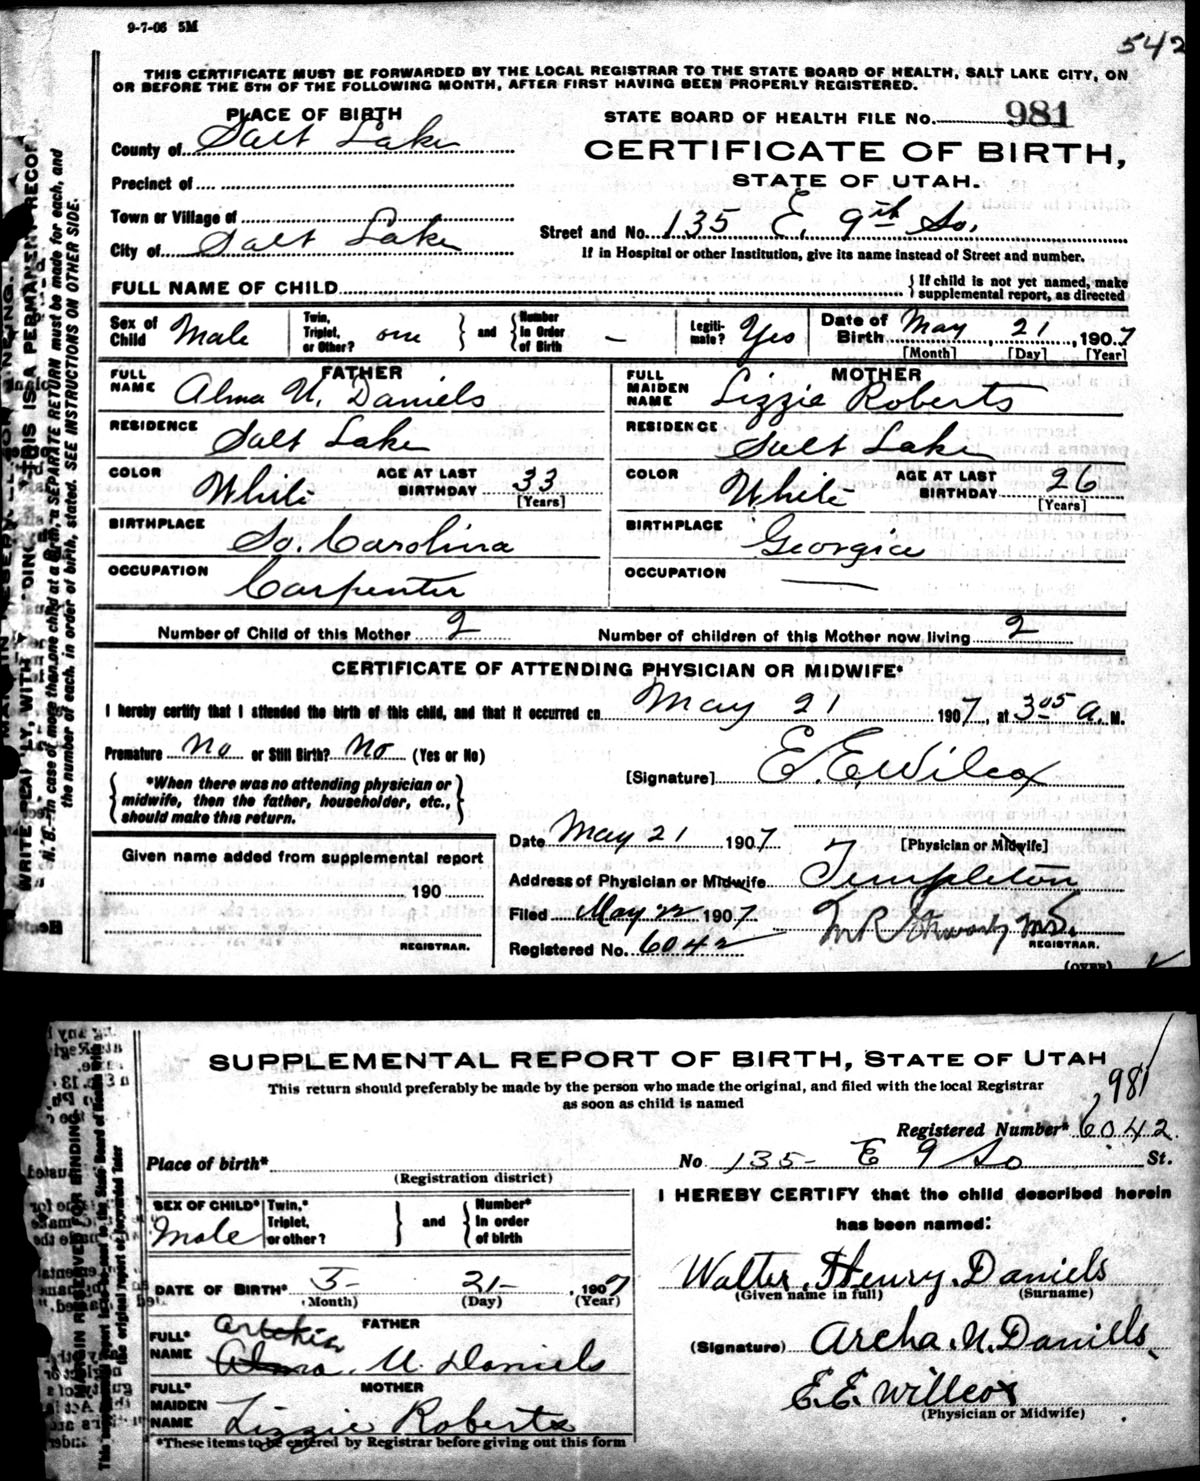 9-7-06 5M
542
THIS CERTIFICATE MUST BE FORWARDED BY THE LOCAL REGISTRAR TO THE STATE BOARD OF HEALTH, SALT LAKE CITY, ON
OR BEFORE THE 5TH OF THE FOLLOWING MONTH, AFTER FIRST HAVING BEEN PROPERLY REGISTERED.
PLACE OF BIRTH
STATE BOARD OF HEALTH FILE No. 981
County of Salt Lake
CERTIFICATE OF BIRTH,
STATE OF UTAH.
Precinct of
Town or Village of
Street and No. 135 E. 9th So.
City of Salt Lake
If in Hospital or other Institution, give its name instead of Street and number.
FULL NAME OF CHILD
If child is not yet named, make supplemental report, as directed
Sex of Child Male Twin, Triplet, or Other? one and Number in Order of Birth – Legiti-mate? Yes Date of Birth May 21, 1907
[Month] [Day] [Year]
FATHER MOTHER
FULL NAME Alma N. Daniels FULL MAIDEN NAME Lizzie Roberts
RESIDENCE Salt Lake RESIDENCE Salt Lake
COLOR White AGE AT LAST BIRTHDAY 33 [Years] COLOR White AGE AT LAST BIRTHDAY 26 [Years]
BIRTHPLACE So. Carolina BIRTHPLACE Georgia
OCCUPATION Carpenter OCCUPATION —
Number of Child of this Mother 2 Number of children of this Mother now living 2
CERTIFICATE OF ATTENDING PHYSICIAN OR MIDWIFE*
I hereby certify that I attended the birth of this child, and that it occurred on May 21 1907, at 3 05 A. M.
Premature No or Still Birth? No (Yes or No)
[Signature] E. E. Wilcox
*When there was no attending physician or
midwife, then the father, householder, etc.,
should make this return.
Date May 21 1907 [Physician or Midwife]
Given name added from supplemental report
190
Address of Physician or Midwife Templeton
Filed May 22 1907
REGISTRAR.
Registered No. 6042
REGISTRAR.
(OVER)
WRITE PLAINLY, WITH
THIS IS A PERMANENT RECORD
N. B.—In case of more than one child at a birth, a SEPARATE RETURN must be made for each, and
the number of each, in order of birth, stated. SEE INSTRUCTIONS ON OTHER SIDE.
SUPPLEMENTAL REPORT OF BIRTH, STATE OF UTAH
This return should preferably be made by the person who made the original, and filed with the local Registrar
as soon as child is named
981
Registered Number* 6042
Place of birth* No 135- E 9 So St.
(Registration district)
SEX OF CHILD* Male Twin,* Triplet, or other? and Number* In order of birth
I HEREBY CERTIFY that the child described herein
has been named:
Walter Henry Daniels
(Given name in full) (Surname)
DATE OF BIRTH* 5- 21- 1907
(Month) (Day) (Year)
FATHER
FULL* NAME Alma N. Daniels
(Signature) Archa. N. Daniells
MOTHER
FULL* MAIDEN NAME Lizzie Roberts
E.E. Willcox
(Physician or Midwife)
*These items to be entered by Registrar before giving out this form
MARGIN RESERVED FOR BINDING